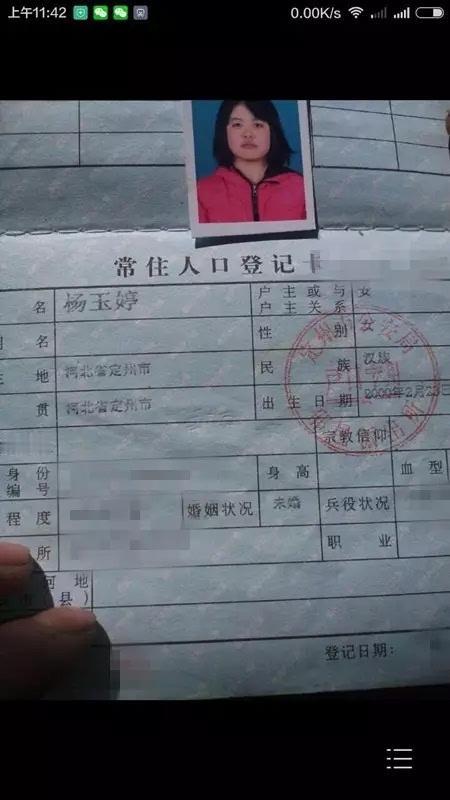 上午11:42
0.00K/s
常住人口登记
名 杨玉婷 户主或与户主关系 女
名 性别
地 河北省定州市 民族 汉族
贯 河北省定州市 出生日期 2000年2月23日
宗教信仰
身份编号 身高 血型
程度 婚姻状况 未婚 兵役状况
所 职业
登记日期: